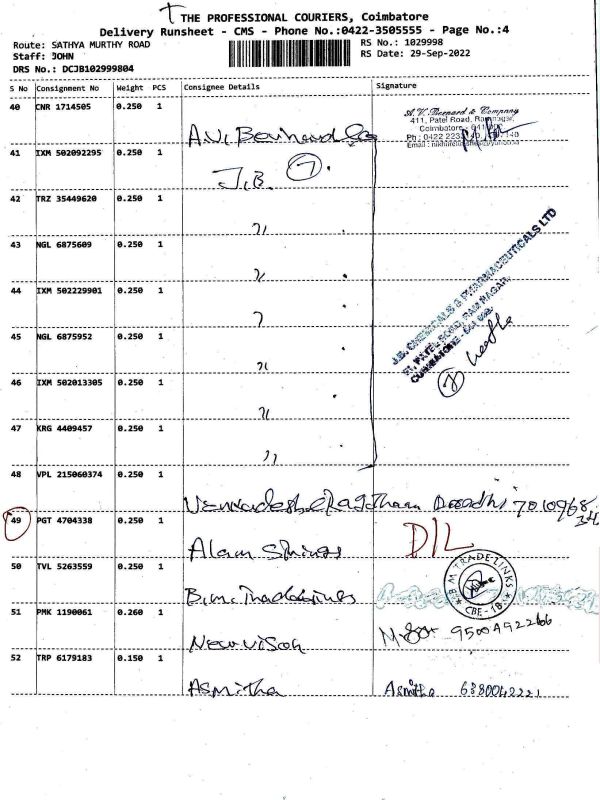 THE PROFESSIONAL COURIERS, Coimbatore
Delivery Runsheet - CMS - Phone No.:0422-3505555 - Page No.:4
Route: SATHYA MURTHY ROAD
RS No.: 1029998
Staff: JOHN
RS Date: 29-Sep-2022
DRS No.: DCJB102999804
S No Consignment No Weight PCS Consignee Details Signature
40 CNR 1714505 0.250 1
A.V. Bernard & Company
411, Patel Road, Ramnagar,
Coimbatore - 641
Ph : 0422
41 IXM 502092295 0.250 1
J.B. 7
42 TRZ 35449620 0.250 1
43 NGL 6875609 0.250 1
44 IXM 502229901 0.250 1
J.B. CHEMICALS & PHARMACEUTICALS LTD
PATEL ROAD, RAM NAGAR,
COIMBATORE - 641 009.
45 NGL 6875952 0.250 1
46 IXM 502013305 0.250 1
7
47 KRG 4409457 0.250 1
48 VPL 215060374 0.250 1
49 PGT 4704338 0.250 1
Alam Springs D/L
50 TVL 5263559 0.250 1
B.M. TRADE-LINKS
CBE-18
51 PMK 1190061 0.260 1
New vison
52 TRP 6179183 0.150 1
Asmitha Asmitha